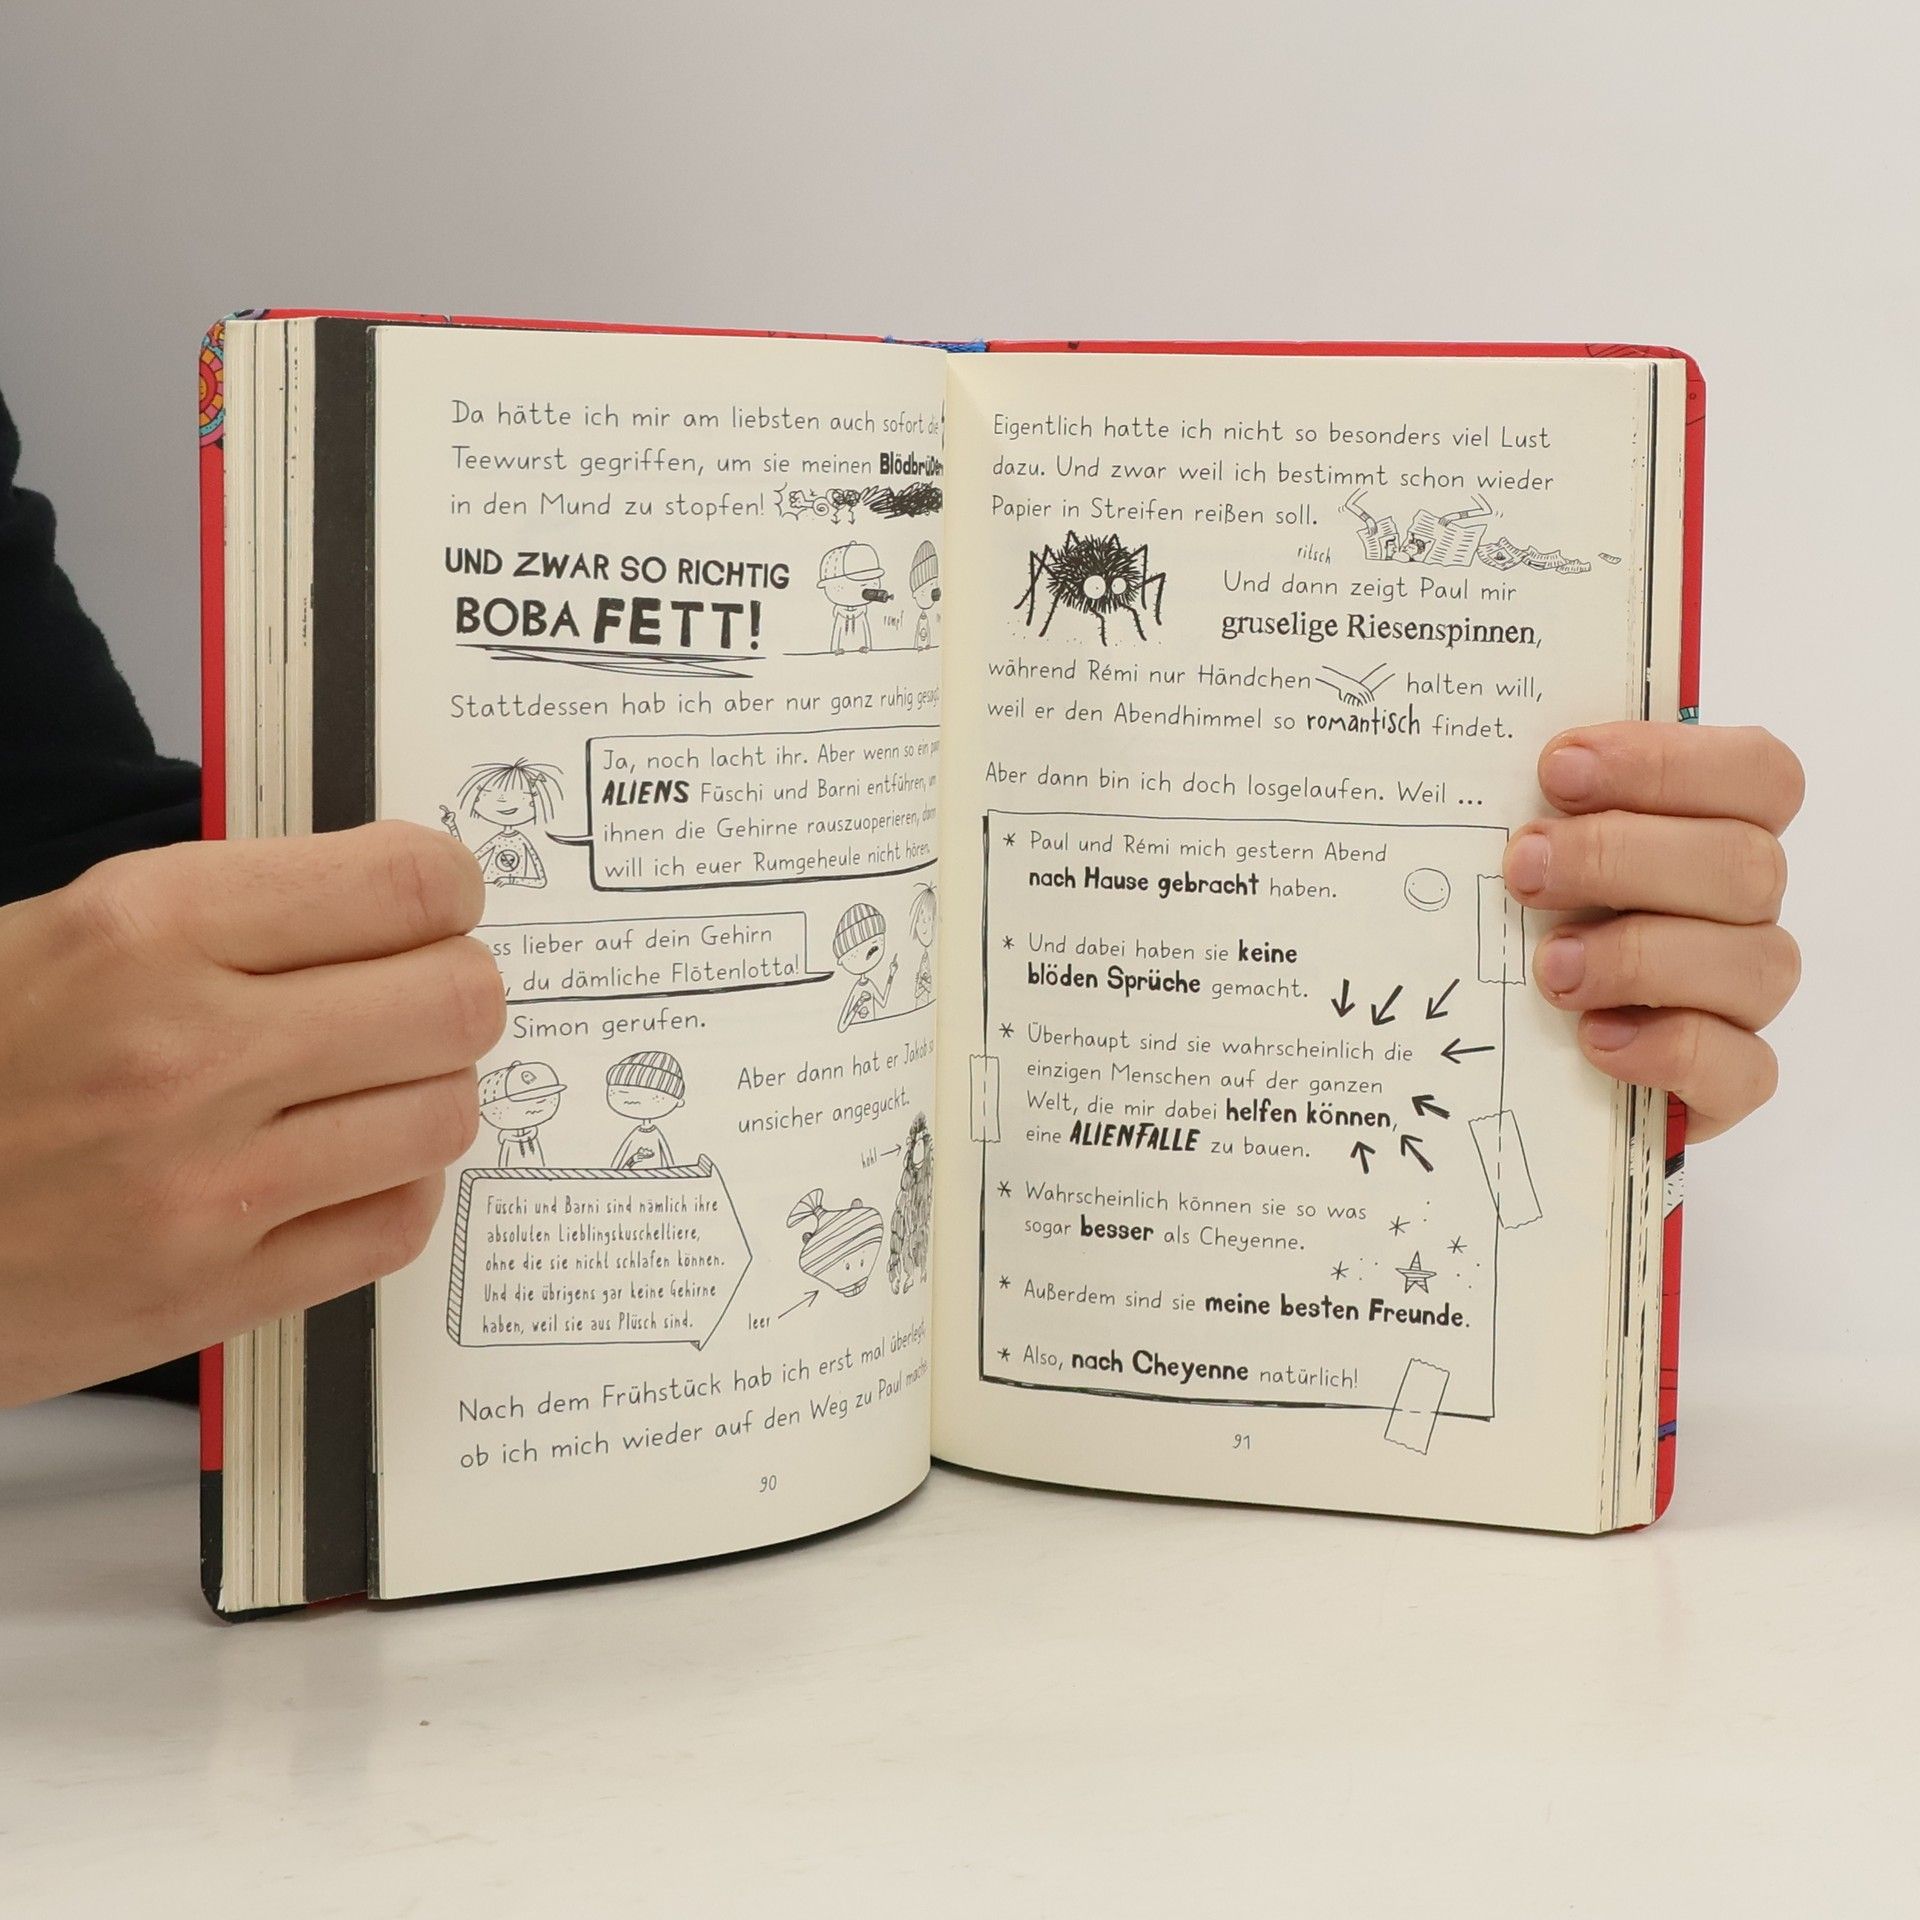 Da hätte ich mir am liebsten auch sofort die
Teewurst gegriffen, um sie meinen Blödbrüdern
in den Mund zu stopfen!
UND ZWAR SO RICHTIG
BOBA FETT!
Stattdessen hab ich aber nur ganz ruhig
Ja, noch lacht ihr. Aber wenn so ein
ALIENS Füschi und Barni entführen, um
ihnen die Gehirne rauszuoperieren, dann
will ich euer Rumgeheule nicht hören.
lieber auf dein Gehirn
, du dämliche Flötenlotta!
Simon gerufen.
Aber dann hat er Jakob so
unsicher angeguckt.
hohl
Füschi und Barni sind nämlich ihre
absoluten Lieblingskuscheltiere,
ohne die sie nicht schlafen können.
Und die übrigens gar keine Gehirne
haben, weil sie aus Plüsch sind.
leer
Nach dem Frühstück hab ich erst mal überlegt,
ob ich mich wieder auf den Weg zu Paul
90
Eigentlich hatte ich nicht so besonders viel Lust
dazu. Und zwar weil ich bestimmt schon wieder
Papier in Streifen reißen soll.
ritsch
Und dann zeigt Paul mir
gruselige Riesenspinnen,
während Rémi nur Händchen halten will,
weil er den Abendhimmel so romantisch findet.
Aber dann bin ich doch losgelaufen. Weil ...
* Paul und Rémi mich gestern Abend
nach Hause gebracht haben.
* Und dabei haben sie keine
blöden Sprüche gemacht.
* Überhaupt sind sie wahrscheinlich die
einzigen Menschen auf der ganzen
Welt, die mir dabei helfen können,
eine ALIENFALLE zu bauen.
* Wahrscheinlich können sie so was
sogar besser als Cheyenne.
* Außerdem sind sie meine besten Freunde.
* Also, nach Cheyenne natürlich!
91